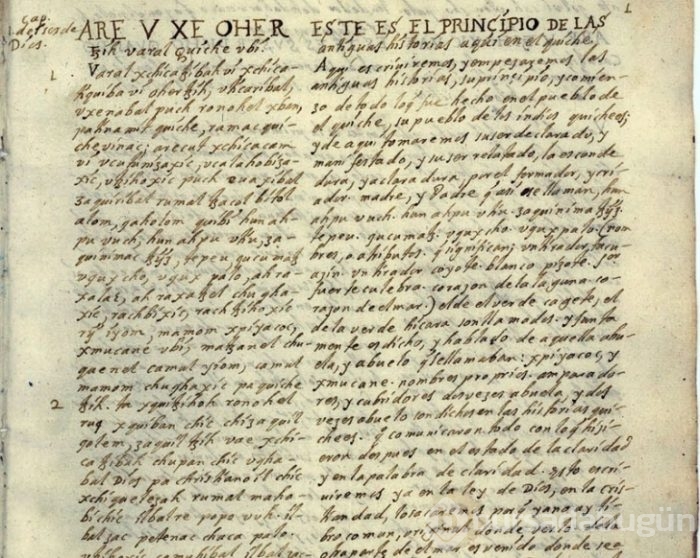 Cap.
1. del ser de
Dios.
1
ARE V XE OHER
tzih varal Quiche vbi.
1
Varal xchicatzibah vi xchica-
tiquiba vi oher tzih, vticaribal,
vxenabal puch ronohel xban,
pa tinamit quiche, ramac qui-
che vinac; arecut xchicacam
vi vcutunizaxic, vcalahobiza-
xic, vtzihoxic puch euaxibal
zaquiribal rumal tzacol bitol
alom, qaholom quibi hun ah-
pu vuch, hun ahpu vtiu, za-
quinimac tzÿz, tepeu, qucumatz
vquxcho, vqux palo, ah ra-
xalac, ah raxa tzel chugha-
xic, rachbixic, rachtzihoxic
rij iyom, mamom xpiyacoc,
xmucane vbi, matzanel chu-
quenel camul iyom, camul
mamom chughaxic pa quiche
tzih.
2
ta xquitzihoh ronohel
ruq xquiban chic chi zaquil
qolem, zaquil tzih vae xchi-
catzibah chupan chic vgha-
bal Dios pa christianoil chic
xchiquelezah rumal maha-
bi chic ilbal re popo vuh. il-
bal zac petenac chaca palo
ESTE ES EL PRINCIPIO DE LAS
antiguas historias aqui en el quiche.
Aqui escriviremos, y empezaremos las
antiguas historias, su principio, y comien-
zo de todo loq fue hecho en el pueblo de
el quiche, su pueblo de los indios quichees;
y de aqui tomaremos su ser declarado, y
manifestado, y su ser relatado, la esconde
dura, y aclaradura, por el formador, y cri-
ador. madre, y Padre q asi se llaman, hun
ahpu vuch. hun ahpu vtiu. zaquinima tzÿz.
tepeu. qucumatz. vquxcho. vqux palo. (nom
bres, o atributos. q significan; vn tirador tacu-
azin. vn tirador coyote. blanco pizote. Sor
fuerte culebra. corazon de la laguna. co-
razon de el mar.) el de el verde cagete, el
de la verde hicara son llamados. y junta
mente es dicho, y hablado de aquella abu-
ela, y abuelo q se llamaban: xpiyacoc, y
xmucane. nombres proprios. amparado-
res, y cubridores dos vezes abuela, y dos
vezes abuelo son dichos en las historias qui-
chees. q comunicaron todo con loq hizi-
eron despues en el estado de la claridad
y en la palabra de claridad. Esto escri-
viremos ya en la ley de Dios, en la cris-
tiandad, lo sacaremos porq ya no ay li-
bro comun, original donde verlo, de